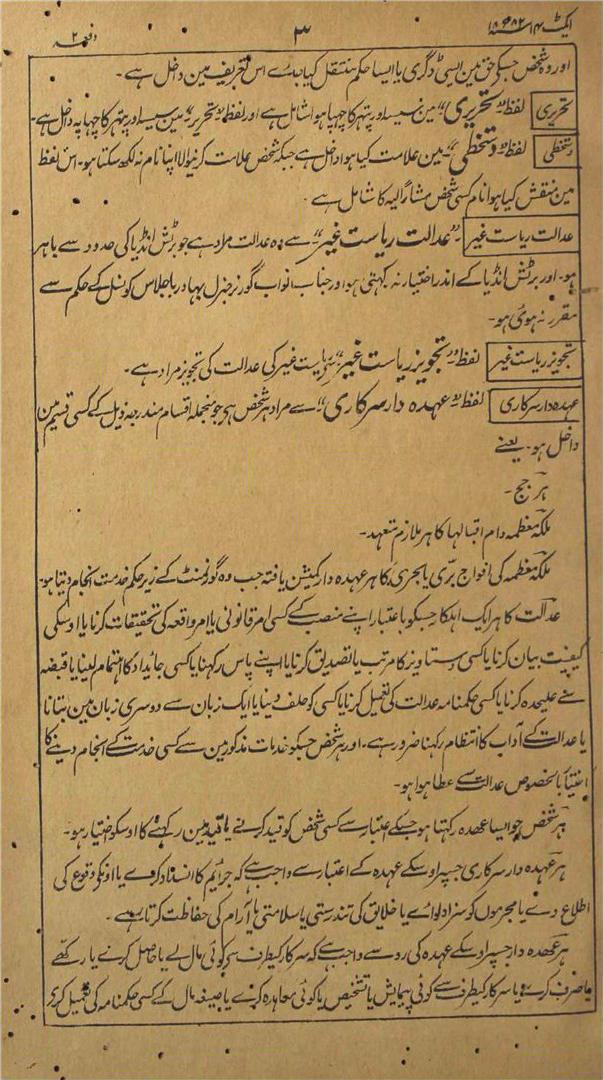 ایکٹ ۱۴ سنہ ۱۸۸۲ء ۳ دفعہ ۲
اور وہ شخص جسکے حق مین ایسی ڈگری یا ایسا حکم منتقل کیا جاے اس تعریف مین داخل ہے۔
تحریری لفظ "تحریری" مین سیسے اور پتھر کا چھپا ہوا شامل ہے اور لفظ "تحریر" مین سیسے اور پتھر کا چھاپہ داخل ہے۔
دستخطی لفظ "دستخطی" مین علامت کیا ہوا داخل ہے جبکہ شخص علامت کرنیوالا اپنا نام نہ لکھ سکتا ہو۔ اس لفظ
مین منقش کیا ہوا نام کسی شخص مشارالیہ کا شامل ہے۔
عدالت ریاست غیر "عدالت ریاست غیر" سے وہ عدالت مراد ہے جو برٹش انڈیا کی حدود سے باہر
ہو۔ اور برٹش انڈیا کے اندر اختیار نہ رکھتی ہو اور جناب نواب گورنر جنرل بہادر باجلاس کونسل کے حکم سے
مقرر نہ ہوئی ہو۔
تجویز ریاست غیر لفظ "تجویز ریاست غیر" سے ریاست غیر کی عدالت کی تجویز مراد ہے۔
عہدہ دار سرکاری لفظ "عہدہ دار سرکاری" سے مراد ہر شخص ہی جو منجملہ اقسام مندرجہ ذیل کے کسی قسیم مین
داخل ہو۔ یعنے
ہر جج۔
ملکہ معظمہ دام اقبالہا کا ہر ملازم متعہد۔
ملکہ معظمہ کی افواج برّی یا بحری کا ہر عہدہ دار کمیشن یافتہ جب وہ گورنمنٹ کے زیر حکم خدمت انجام دیتا ہو۔
عدالت کا ہر ایک اہلکار جسکو باعتبار اپنے منصب کے کسی امر قانونی یا امر واقعہ کی تحقیقات کرنا یا اوسکی
کیفیت بیان کرنا یا کسی دستاویز کا مرتب یا تصدیق کرنا یا اپنے پاس رکھنا یا کسی جائداد کا اہتمام لینا یا قبضہ
سے علیحدہ کرنا یا کسی حکمنامہ عدالت کی تعمیل کرنا یا کسی کو حلف دینا یا ایک زبان سے دوسری زبان مین بتانا
یا عدالت کے آداب کا انتظام رکھنا ضرور ہے۔ اور ہر شخص جسکو خدمات مذکور مین سے کسی خدمت کے انجام دینے کا
اختیار بالخصوص عدالت سے عطا ہوا ہو۔
ہر شخص جو ایسا عہدہ رکھتا ہو جسکے اعتبار سے کسی شخص کو قید کرنے یا قید مین رکھنے کا اوسکو اختیار ہو۔
ہر عہدہ دار سرکاری جسپر اوسکے عہدہ کے اعتبار سے واجب ہے کہ جرائم کا انسداد کرے یا اونکی وقوع کی
اطلاع دے یا مجرمون کو سزا دلواے یا خلایق کی تندرستی یا سلامتی یا آرام کی حفاظت کرتا رہے۔
ہر عہدہ دار جسپر اوسکے عہدہ کی رو سے واجب ہے کہ سرکار کیطرف سے کوئی مال لے یا حاصل کرے یا رکھے
یا صرف کرے یا سرکار کیطرف سے کوئی پیمایش یا تشخیص یا کوئی معاہدہ کرے یا بصیغہ مال کے کسی حکمنامہ کی تعمیل کرے